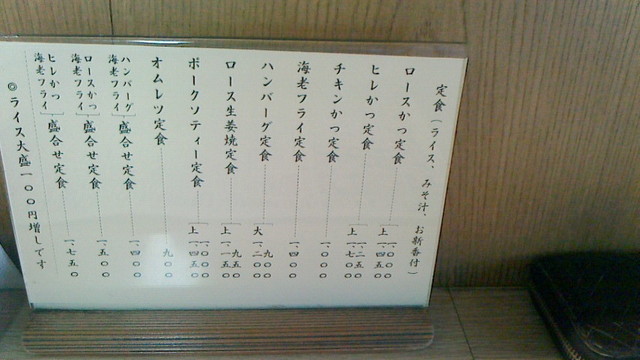 定食（ライス、みそ汁、お新香付）
ロースかつ定食 一、〇〇〇 上 一、四五〇
ヒレかつ定食 一、二五〇 上 一、七〇〇
チキンかつ定食 一、〇〇〇
海老フライ定食 一、四〇〇
ハンバーグ定食 九〇〇 大 一、二〇〇
ロース生姜焼定食 九五〇 上 一、一五〇
ポークソティー定食 一、〇〇〇 上 一、四五〇
オムレツ定食 九〇〇
ハンバーグ 海老フライ 盛合せ定食 一、四〇〇
ロースかつ 海老フライ 盛合せ定食 一、五〇〇
ヒレかつ 海老フライ 盛合せ定食 一、七五〇
◎ライス大盛一〇〇円増しです